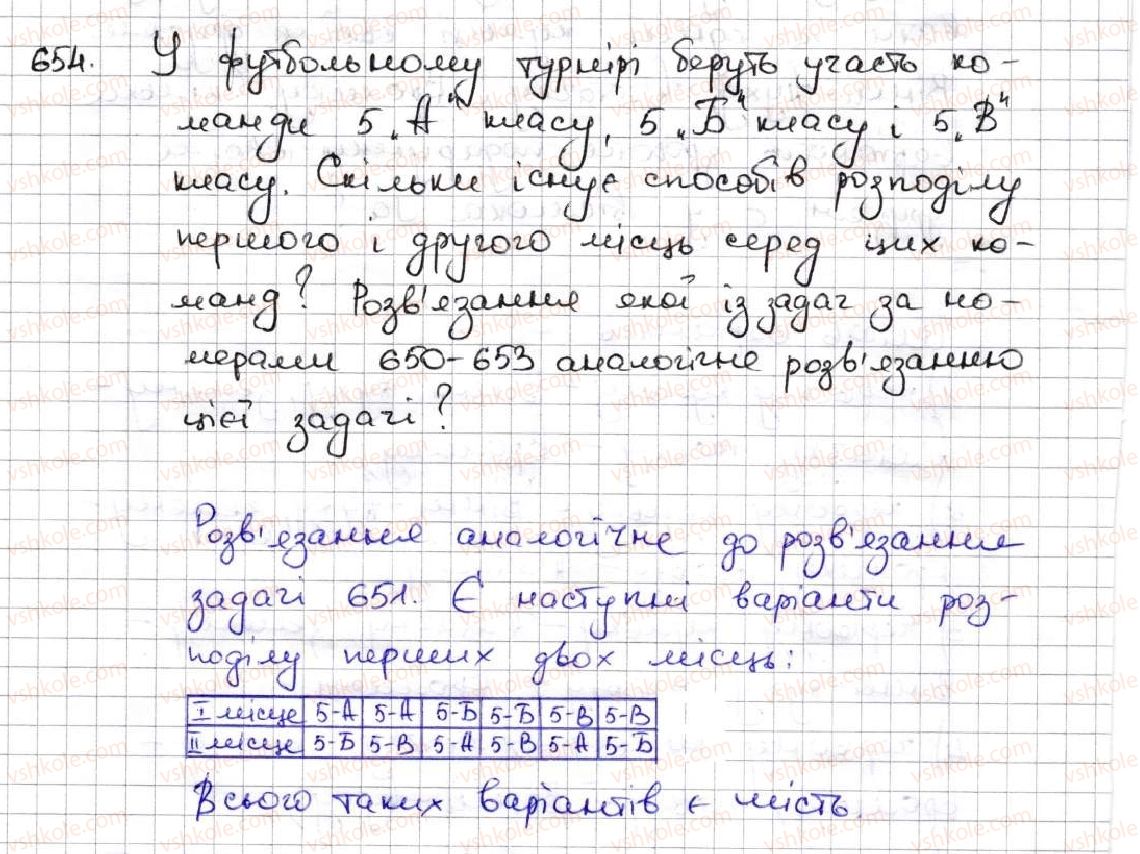 654. У футбольному турнірі беруть участь ко-
манди 5 „А" класу, 5 „Б" класу і 5 „В"
класу. Скільки існує способів розподілу
першого і другого місць серед цих ко-
манд? Розв'язання якої із задач за но-
мерами 650-653 аналогічне розв'язанню
цієї задачі?
Розв'язання аналогічне до розв'язання
задачі 651. Є наступні варіанти роз-
поділу перших двох місць:
I місце 5-А 5-А 5-Б 5-Б 5-В 5-В
II місце 5-Б 5-В 5-А 5-В 5-А 5-Б
Всього таких варіантів є шість.
vshkole.com